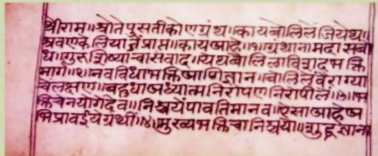 श्रीराम॥श्रोतेपुसतीकोणग्रंथ॥कायबोलिलेंजियेथ॥
श्रवणकेलियानेंप्राप्त॥कायआहे॥१॥ग्रंथानामदासबो
ध॥गुरुशिष्यांचासंवाद॥येथबोलिलाविशदभक्ति
मार्ग॥२॥नवविधाभक्तिआणिज्ञान॥बोलिलेंवैराग्या
चेंलक्षण॥बहुधाअध्यात्मनिरोपण॥निरोपिलें॥३॥भ
क्तिचेनयोगेंदेव॥निश्चयेंपावतिमानव॥ऐसाआहेअ
भिप्रावईयेग्रंथीं॥४॥मुख्यभक्तिचानिश्चयो॥शुद्धज्ञाना